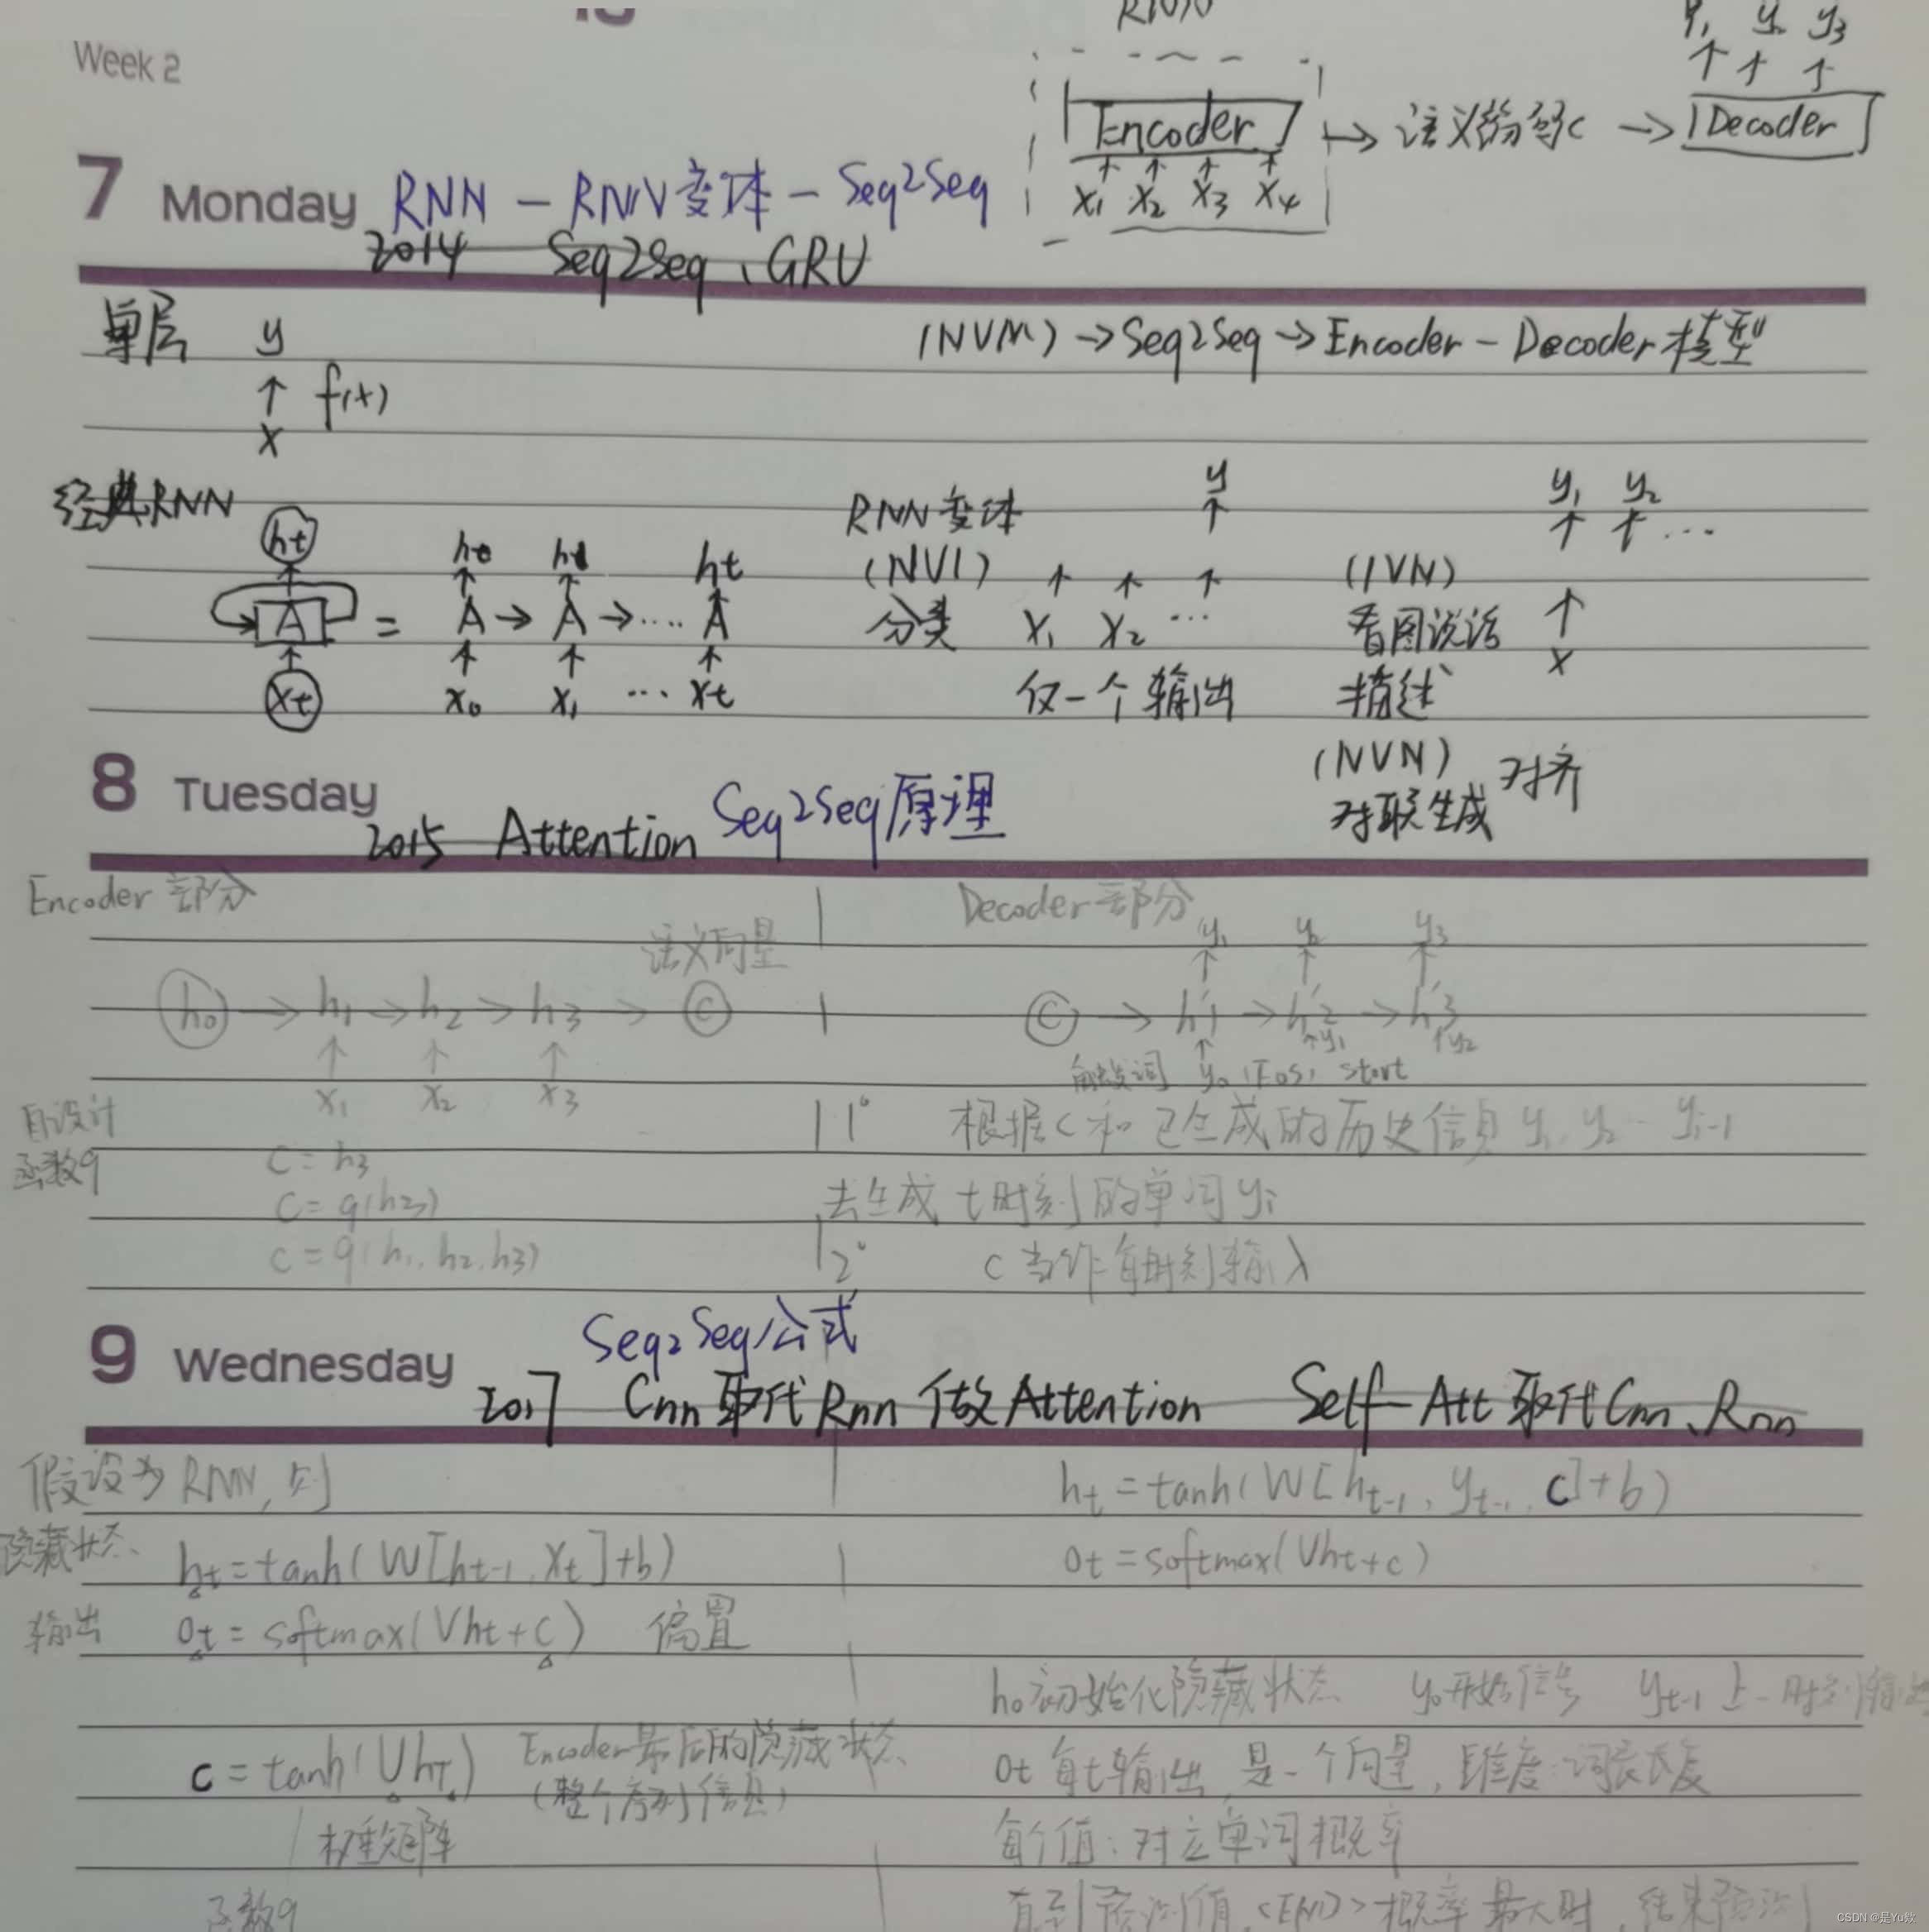 Week 2
Encoder → 语义编码c → Decoder
y1 y2 y3
x1 x2 x3 x4
7 Monday RNN - RNN变体 - Seq2Seq
2014 Seq2Seq、GRU
单层 y
f(x)
x
(NVM) → Seq2Seq → Encoder - Decoder 模型
经典RNN
ht
A
xt
=
h0 h1 ht
A → A → .... A
x0 x1 ... xt
RNN变体
(NV1)
分类
y
x1 x2 ...
仅一个输出
(1VN)
看图说话
描述
y1 y2 ...
x
(NVN) 对齐
对联生成
8 Tuesday Seq2Seq原理
2015 Attention
Encoder 部分
语义向量
h0 → h1 → h2 → h3 → c
x1 x2 x3
自设计
函数q
c = h3
c = q(h3)
c = q(h1, h2, h3)
Decoder 部分
y1 y2 y3
c → h'1 → h'2 → h'3
y1 y2
y0 start
1° 根据c和已生成的历史信息 y1, y2 ... yi-1
去生成 t时刻的单词yi
2° c当作每时刻输入
9 Wednesday Seq2Seq公式
2017 Cnn取代Rnn做Attention Self-Att取代Cnn、Rnn
假设为RNN,则
隐藏状态 ht = tanh(W[ht-1, xt]+b)
输出 ot = softmax(Vht+c) 偏置
c = tanh(UhT) Encoder最后的隐藏状态
(整个序列信息)
权重矩阵
函数q
ht = tanh(W[ht-1, yt-1, c]+b)
ot = softmax(Vht+c)
h0初始化隐藏状态 y0开始信号 yt-1上一时刻输出
ot 每t输出,是一个向量,维度:词表长度
每个值:对应单词概率
直到预测值<END>概率最大时,结束预测
CSDN @是Yu欸